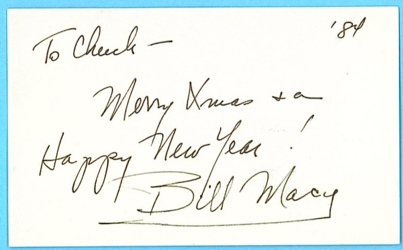 To Chuck — '84
Merry Xmas + a
Happy New Year!
Bill Macy